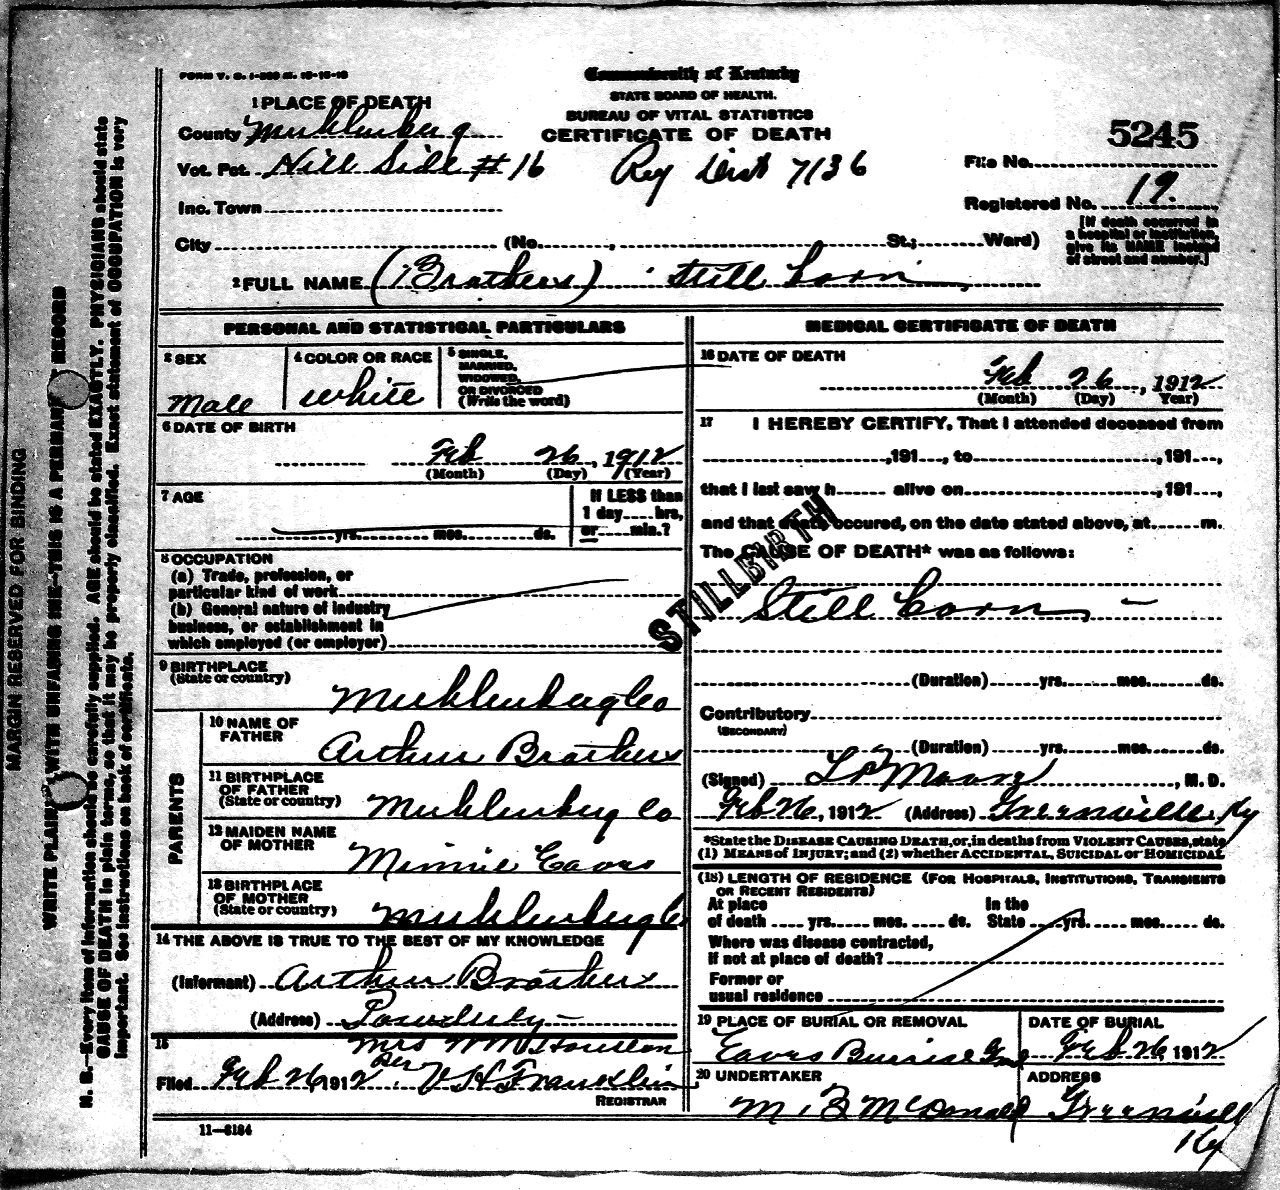 FORM V. S. 1-200 M. 10-15-10
Commonwealth of Kentucky
STATE BOARD OF HEALTH.
BUREAU OF VITAL STATISTICS
CERTIFICATE OF DEATH
1 PLACE OF DEATH
County Muhlenberg
Vot. Pct. Hill Side # 16
Reg Dist 7136
5245
File No.
Registered No. 19.
Inc. Town
[If death occurred in
a hospital or institution,
give its NAME instead
of street and number.]
City (No. , St.; Ward)
2 FULL NAME (Brothers) Still born
PERSONAL AND STATISTICAL PARTICULARS
3 SEX
Male
4 COLOR OR RACE
White
5 SINGLE,
MARRIED,
WIDOWED,
OR DIVORCED
(Write the word)
6 DATE OF BIRTH
Feb 26, 1912
(Month) (Day) (Year)
7 AGE
yrs. mos. ds.
If LESS than
1 day hrs,
or min.?
8 OCCUPATION
(a) Trade, profession, or
particular kind of work
(b) General nature of industry
business, or establishment in
which employed (or employer)
9 BIRTHPLACE
(State or country)
Muhlenberg Co
PARENTS
10 NAME OF
FATHER
Arthur Brothers
11 BIRTHPLACE
OF FATHER
(State or country)
Muhlenberg Co
12 MAIDEN NAME
OF MOTHER
Minnie Eaves
13 BIRTHPLACE
OF MOTHER
(State or country)
Muhlenberg Co
14 THE ABOVE IS TRUE TO THE BEST OF MY KNOWLEDGE
(Informant) Arthur Brothers
(Address) Powderly
15
Mrs Wm Houston
Filed Feb 26 1912 Per V H Franklin
REGISTRAR
11-6184
MEDICAL CERTIFICATE OF DEATH
16 DATE OF DEATH
Feb 26, 1912
(Month) (Day) Year)
17 I HEREBY CERTIFY, That I attended deceased from
,191 , to ,191 ,
that I last saw h alive on ,191 ,
and that death occured, on the date stated above, at m.
The CAUSE OF DEATH* was as follows:
STILLBIRTH
Still born
(Duration) yrs. mos. ds.
Contributory
(SECONDARY)
(Duration) yrs. mos. ds.
(Signed) Moore, M. D.
Feb 26, 1912 (Address) Greenville Ky
*State the DISEASE CAUSING DEATH, or, in deaths from VIOLENT CAUSES, state
(1) MEANS of INJURY; and (2) whether ACCIDENTAL, SUICIDAL or HOMICIDAL
(18) LENGTH OF RESIDENCE (FOR HOSPITALS, INSTITUTIONS, TRANSIENTS
OR RECENT RESIDENTS)
At place In the
of death yrs. mos. ds. State yrs. mos. ds.
Where was disease contracted,
if not at place of death?
Former or
usual residence
19 PLACE OF BURIAL OR REMOVAL
Eaves
DATE OF BURIAL
Feb 26, 1912
20 UNDERTAKER
M. B McDonald
ADDRESS
Greenville
Ky
MARGIN RESERVED FOR BINDING
WRITE PLAINLY WITH UNFADING INK—THIS IS A PERMANENT RECORD
N. B.—Every item of information should be carefully supplied. AGE should be stated EXACTLY. PHYSICIANS should state
CAUSE OF DEATH in plain terms, so that it may be properly classified. Exact statement of OCCUPATION is very
important. See instructions on back of certificate.